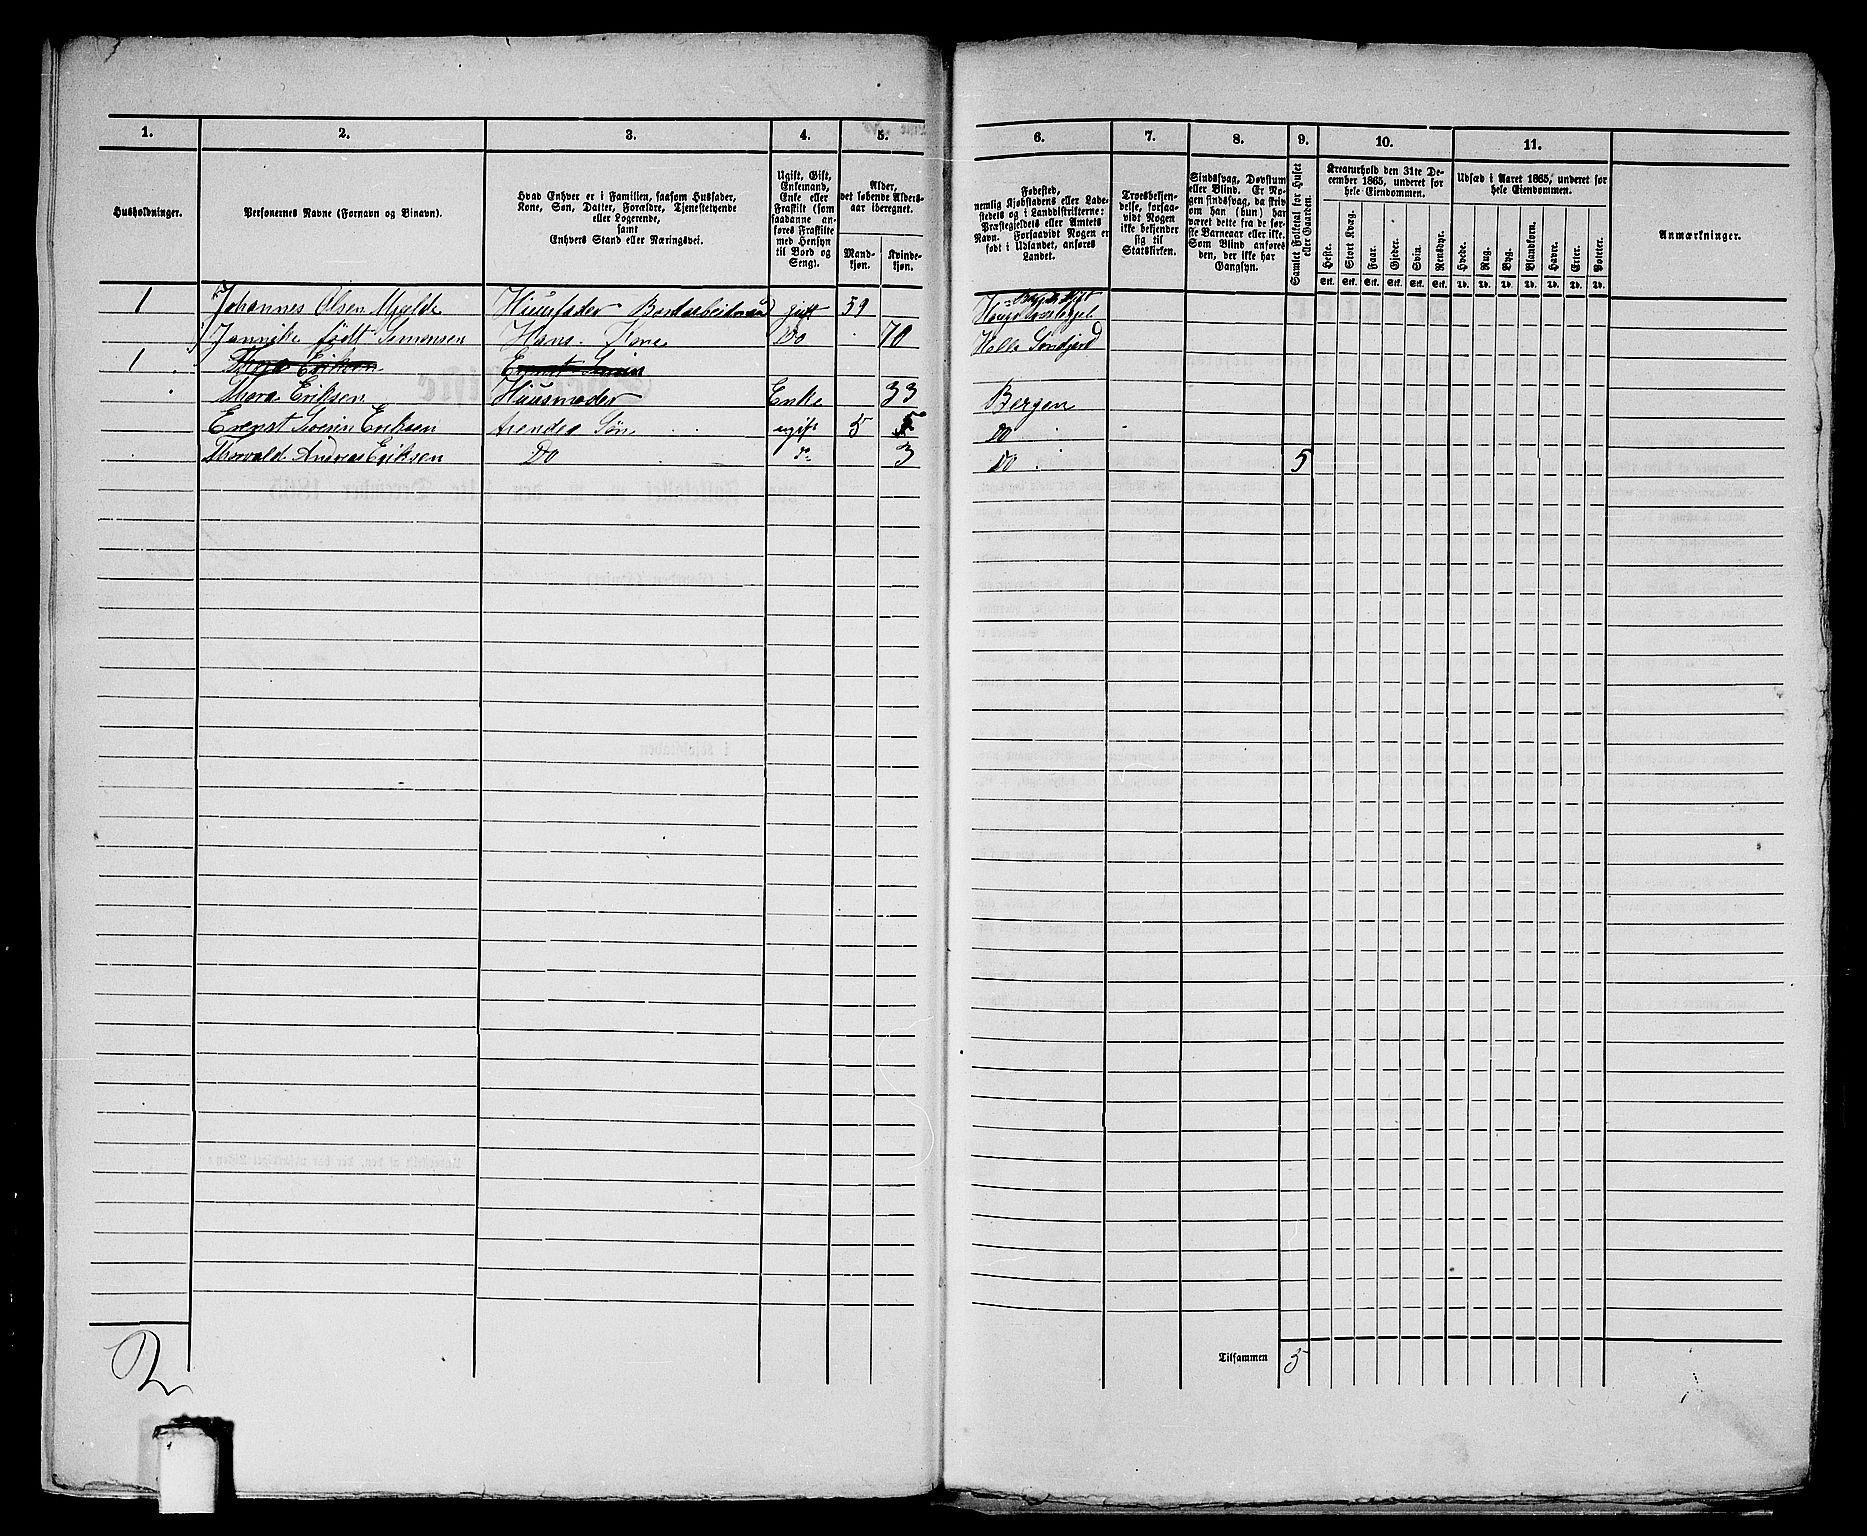 1. 2. 3. 4. 5. 6. 7. 8. 9. 10. 11.
Husholdninger.
Personernes Navne (Fornavn og Binavn).
Hvad Enhver er i Familien, saasom Husfader,
Kone, Søn, Datter, Forældre, Tjenestetyende
eller Logerende,
samt
Enhvers Stand eller Næringsvei.
Ugift, Gift,
Enkemand,
Enke eller
Fraskilt (som
saadanne an-
føres Fraskilte
med Hensyn
til Bord og
Seng).
Alder,
det løbende Alders-
aar iberegnet.
Mand-
kjøn.
Kvinde-
kjøn.
Fødested,
nemlig Kjøbstadens eller Lade-
stedets og i Landdistrikterne:
Præstegjeldets eller Amtets
Navn. Forsaavidt Nogen er
født i Udlandet, anføres
Landet.
Troesbekjen-
delse, forsaa-
vidt Nogen
ikke bekjender
sig til
Statskirken.
Sindssvag, Døvstum
eller Blind. Er No-
gen sindssvag, da skriv
om han (hun) har
været dette fra de før-
ste Barneaar eller ikke.
Som Blind anføres
den, der ikke har
Gangsyn.
Samlet Folketal for Huset
eller Gaarden.
Kreaturhold den 31te De-
cember 1865, underet for
hele Eiendommen.
Heste.
Stort Kvæg.
Faar.
Gjeder.
Svin.
Rensdyr.
Stk. Stk. Stk. Stk. Stk. Stk.
Udsæd i Aaret 1865, underet for
hele Eiendommen.
Hvede.
Rug.
Byg.
Blandkorn.
Havre.
Erter.
Poteter.
Td. Td. Td. Td. Td. Td. Td.
Anmærkninger.
1 Johannes Olsen Mjelde Huusfader Bordarbeidmand gift 59
Jannike født Simonsen Hans Kone Do 70 Søndfjord
1 Thora Eriksen
Thora Eriksen Huusmoder Enke 33 Bergen
Erenst Sverin Eriksen hendes Søn ugift 5 5 Do
Thorvald Andreas Eriksen Do do 3 Do 5
2
Tilsammen 5